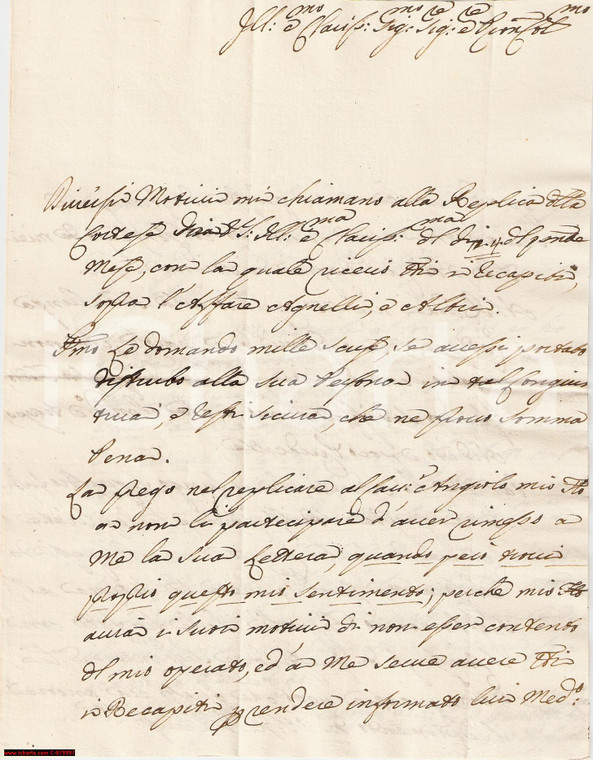 Ill: mo e Clariss: mo Sig: re Sig: re e Pron Col mo
Diversi Motivi mi chiamano alla Replica della
Cortese sua di V.S. Ill: ma e Clariss: ma del di del pnte
Mese, con la quale ricevei tti i Recapiti,
sopra l'Affare Agnelli, e Albizi.
Pmo Le domando mille scuse, se avessi portato
disturbo alla sua Persona in tal Congiun
tura, e resti sicura, che ne provo somma
Pena.
La prego nel replicare al Cav: Angiolo mio
a non li partecipare d'aver rimesso a
Me la sua Lettera, quando però trovi
proprio questo mio sentimento; perchè mio
avrà i suoi motivi di non esser contento
del mio operato, ed a me serve avere tti
i Recapiti p rendere informato lui Med:o
www.ishoria.com